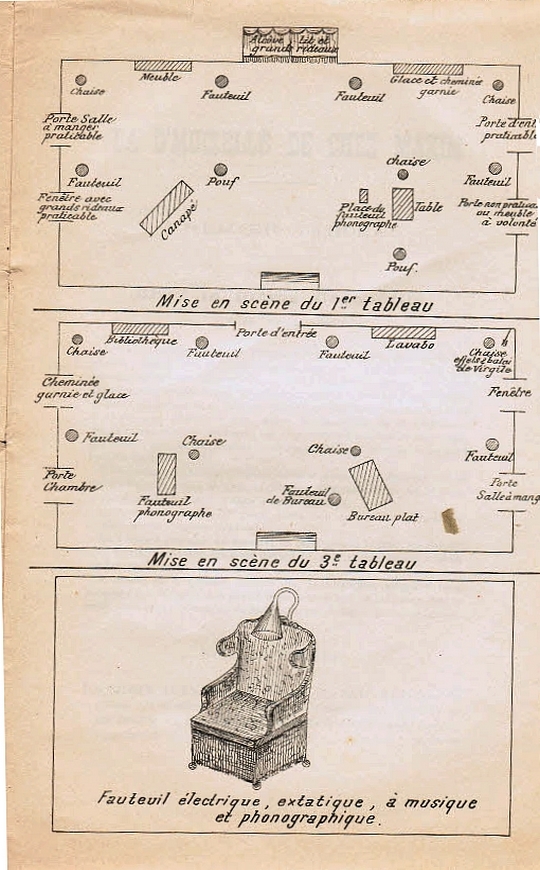 Alcôve Lit et
grands rideaux
Meuble
Glace et cheminée
garnie
Chaise
Fauteuil
Fauteuil
Chaise
Porte Salle
à manger
praticable
Porte d'ent
praticable
Fauteuil
Pouf
Chaise
Fauteuil
Fenêtre avec
grands rideaux
praticable
Canapé
Place du
fauteuil
phonographe
Table
Porte non pratica
ou meuble
à volonté
Pouf.
Mise en scène du 1er tableau
Bibliothèque
Porte d'entrée
Lavabo
Chaise
Fauteuil
Fauteuil
Chaise
effets et balai
de Virgile
Cheminée
garnie et glace
Fenêtre
Fauteuil
Chaise
Chaise
Fauteuil
Porte
Chambre
Fauteuil
phonographe
Fauteuil
de Bureau
Bureau plat
Porte
Salle à mang
Mise en scène du 3e tableau
Fauteuil électrique, extatique, à musique
et phonographique.